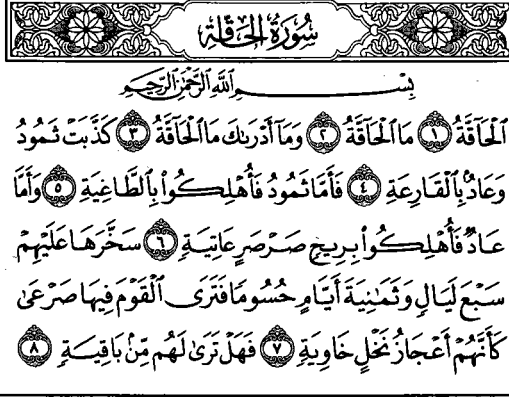 سُورَةُ الْحَاقَّةِ
بِسْمِ ٱللَّهِ ٱلرَّحْمَٰنِ ٱلرَّحِيمِ
ٱلْحَآقَّةُ ١ مَا ٱلْحَآقَّةُ ٢ وَمَآ أَدْرَىٰكَ مَا ٱلْحَآقَّةُ ٣ كَذَّبَتْ ثَمُودُ
وَعَادٌۢ بِٱلْقَارِعَةِ ٤ فَأَمَّا ثَمُودُ فَأُهْلِكُوا۟ بِٱلطَّاغِيَةِ ٥ وَأَمَّا
عَادٌ فَأُهْلِكُوا۟ بِرِيحٍ صَرْصَرٍ عَاتِيَةٍ ٦ سَخَّرَهَا عَلَيْهِمْ
سَبْعَ لَيَالٍ وَثَمَٰنِيَةَ أَيَّامٍ حُسُومًا فَتَرَى ٱلْقَوْمَ فِيهَا صَرْعَىٰ
كَأَنَّهُمْ أَعْجَازُ نَخْلٍ خَاوِيَةٍ ٧ فَهَلْ تَرَىٰ لَهُم مِّنۢ بَاقِيَةٍ ٨